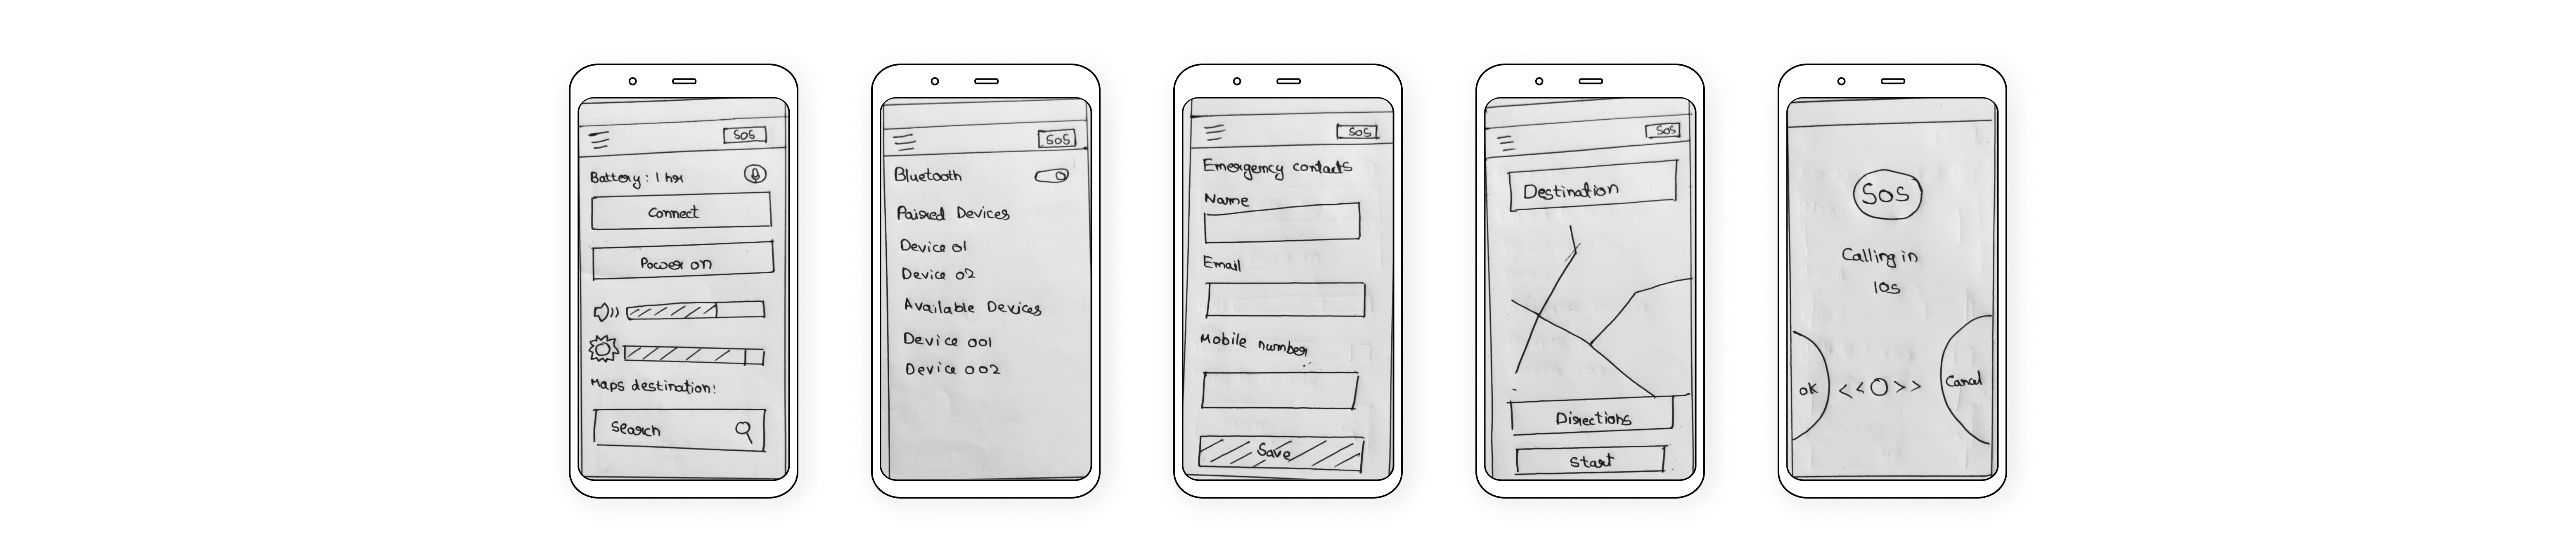 SOS
Battery : 1 hr
Connect
Power on
Maps destination:
Search
SOS
Bluetooth
Paired Devices
Device 01
Device 02
Available Devices
Device 001
Device 002
SOS
Emergency contacts
Name
Email
Mobile number
Save
SOS
Destination
Directions
Start
SOS
Calling in
10s
OK <<O>> Cancel